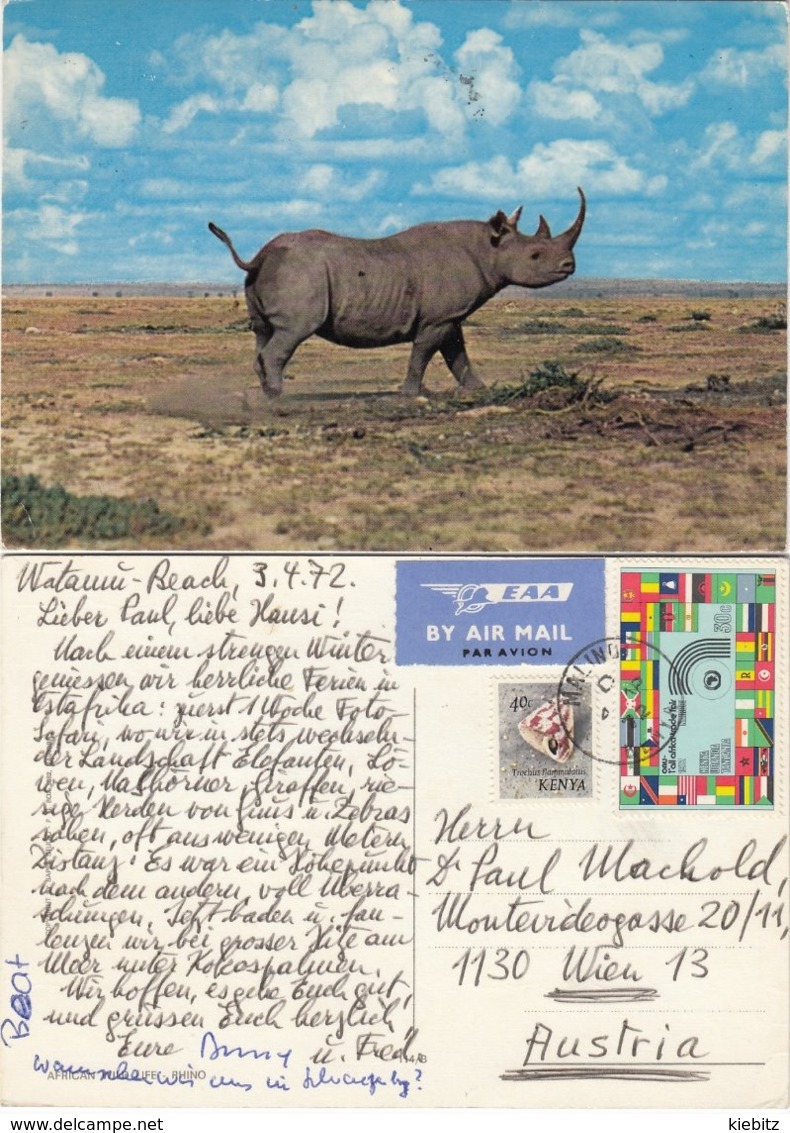 Watamu-Beach, 3.4.72.
Lieber Paul, liebe Hansi!
Nach einem strengen Winter
geniessen wir herrliche Ferien in
Ostafrika: zuerst 1 Woche Foto-
Safari, wo wir in stets wechseln-
der Landschaft Elefanten, Lö-
wen, Nashörner, Giraffen, rie-
sige Herden von Gnus u. Zebras
sahen, oft aus wenigen Metern
Distanz! Es war ein Höhepunkt
nach dem andern, voll Überra-
schungen. Jetzt baden u. fau-
lenzen wir bei grosser Hitze am
Meer unter Kokospalmen.
Wir hoffen, es gehe Euch gut,
und grüssen Euch herzlich
Eure u. Fredi
Beat
wann sehen wir uns in
AFRICAN WILDLIFE - RHINO
EAA
BY AIR MAIL
PAR AVION
MALINDI
40c
Trochus flammulatus
KENYA
30c
1972
KENYA
UGANDA
TANZANIA
Herrn
Dr Paul Machold,
Montevideogasse 20/11,
1130 Wien 13
Austria
kiebitz